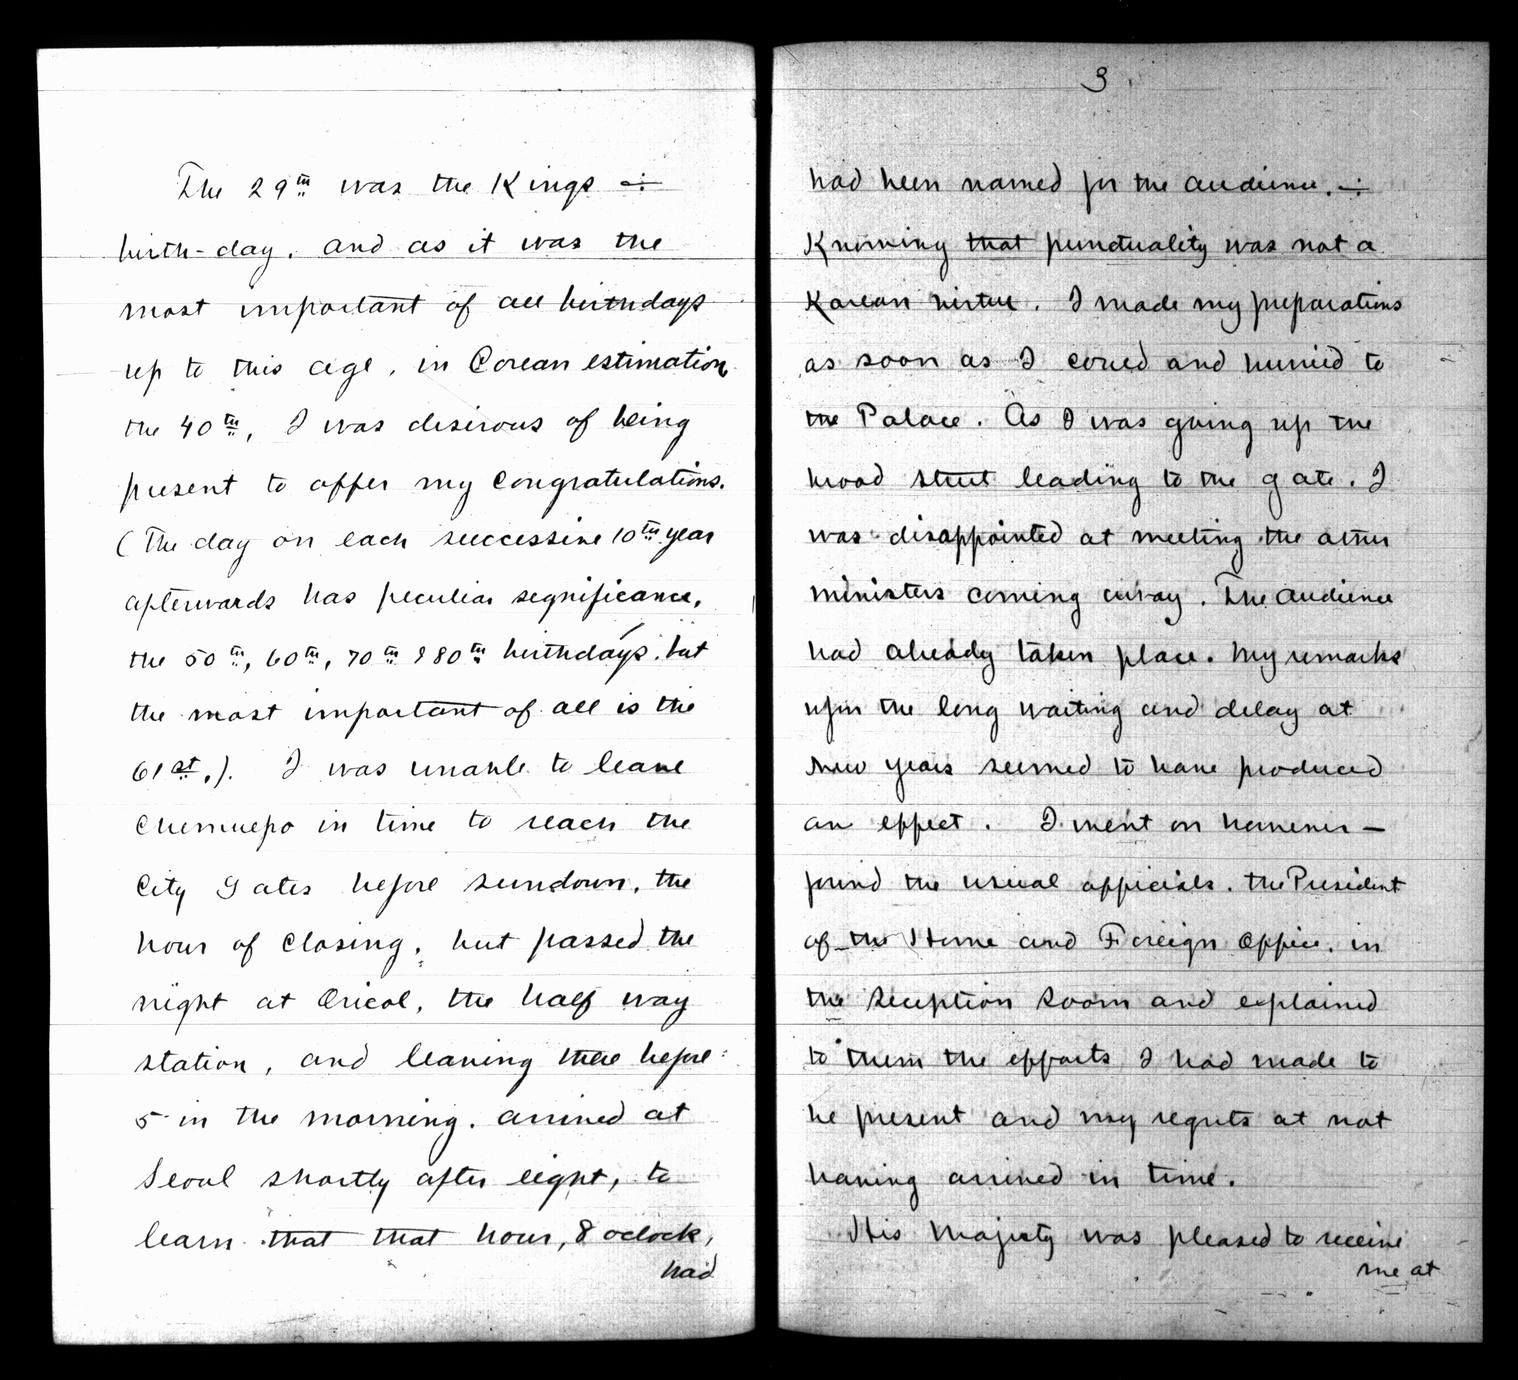 The 29th was the Kings ÷
birth-day, and as it was the
most important of all birthdays
up to this age, in Corean estimation
the 40th, I was desirous of being
present to offer my Congratulations.
(The day on each successive 10th year
afterwards has peculiar significance,
the 50th, 60th, 70th & 80th birthdays, but
the most important of all is the
61st,). I was unable to leave
Chemuepo in time to reach the
City Gates before sundown, the
hour of Closing, but passed the
night at Oricol, the half way
station, and leaving there before
5 in the morning, arrived at
Seoul shortly after eight, to
learn that that hour, 8 oclock,
had
3.
had been named for the audience. ÷
Knowing that punctuality was not a
Korean virtue, I made my preparations
as soon as I could and hurried to
the Palace. As I was going up the
broad street leading to the gate, I
was disappointed at meeting the other
ministers coming away. The Audience
had already taken place. My remarks
upon the long waiting and delay at
New Years seemed to have produced
an effect. I went on however —
found the usual officials, the President
of the Home and Foreign Office, in
the reception room and explained
to them the efforts I had made to
be present and my regrets at not
having arrived in time.
His Majesty was pleased to receive
me at